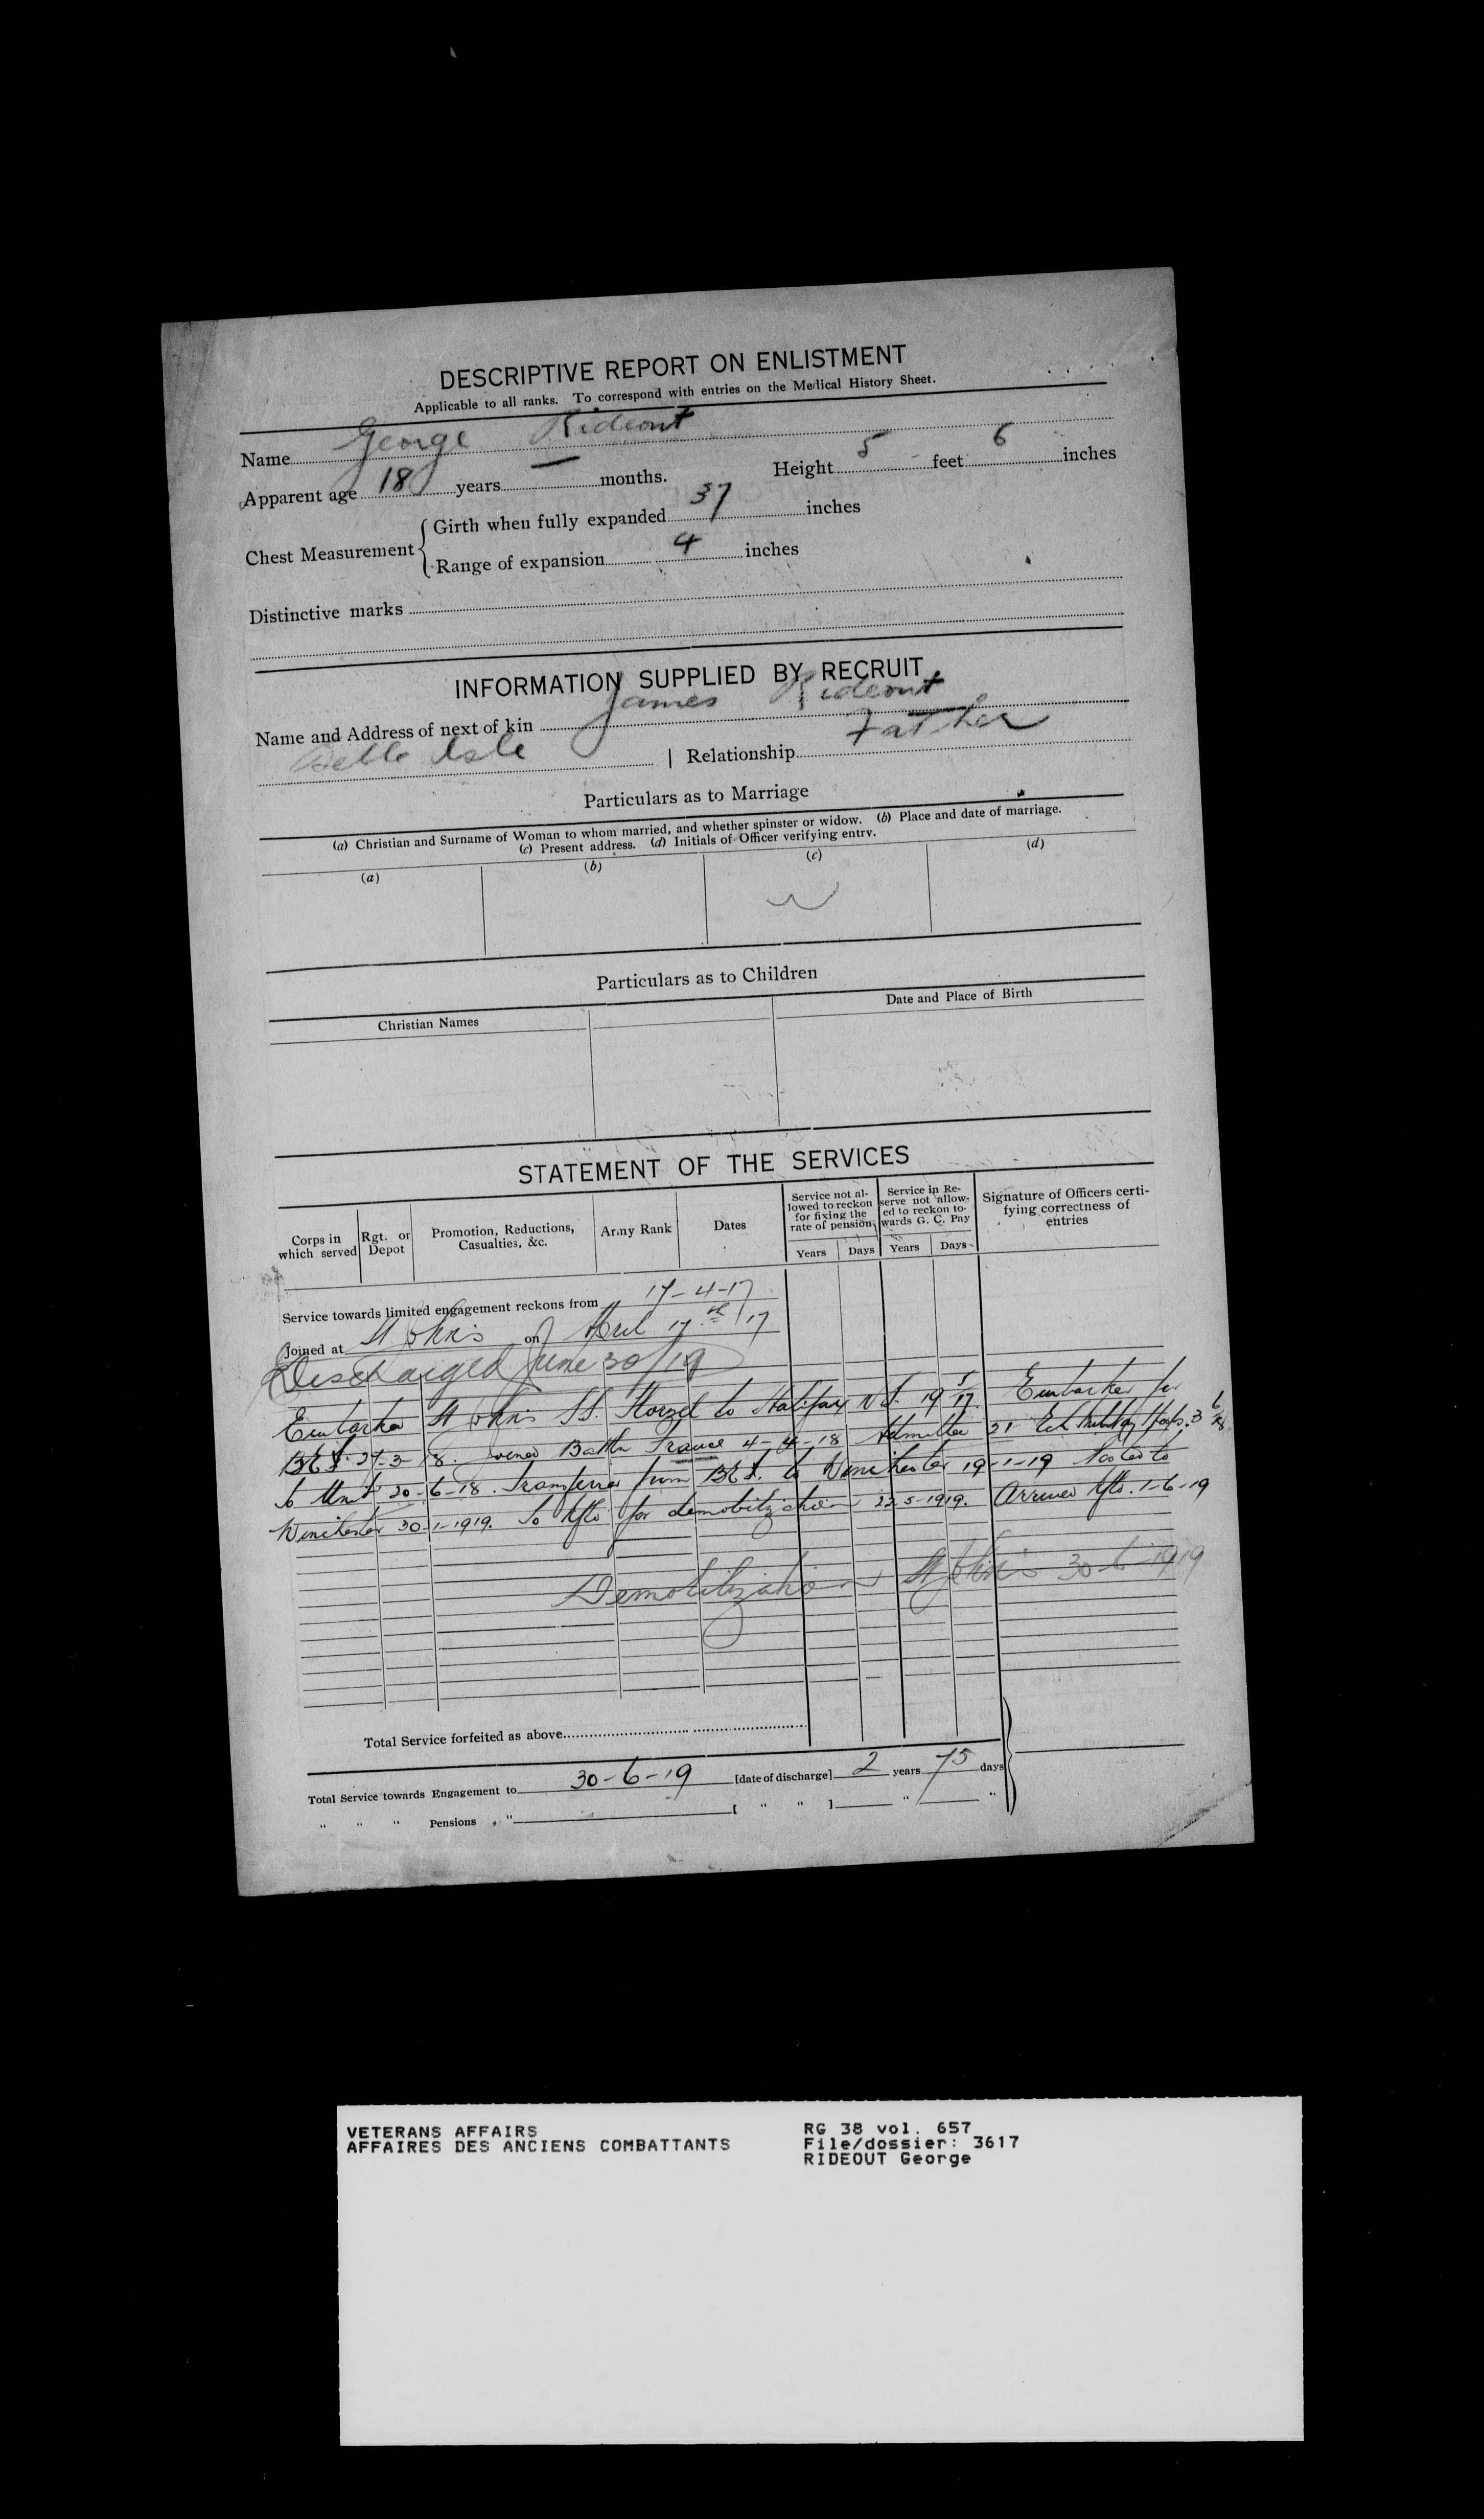 DESCRIPTIVE REPORT ON ENLISTMENT
Applicable to all ranks. To correspond with entries on the Medical History Sheet.
Name George Rideout
Apparent age 18 years — months. Height 5 feet 6 inches
Chest Measurement { Girth when fully expanded 37 inches
Range of expansion 4 inches
Distinctive marks
INFORMATION SUPPLIED BY RECRUIT
Name and Address of next of kin James Rideout
Belle Isle | Relationship Father
Particulars as to Marriage
(a) Christian and Surname of Woman to whom married, and whether spinster or widow. (b) Place and date of marriage.
(c) Present address. (d) Initials of Officer verifying entry.
(a) (b) (c) (d)
Particulars as to Children
Christian Names Date and Place of Birth
STATEMENT OF THE SERVICES
Corps in which served Rgt. or Depot Promotion, Reductions, Casualties, &c. Army Rank Dates Service not allowed to reckon for fixing the rate of pension Service in Reserve not allowed to reckon towards G. C. Pay Signature of Officers certifying correctness of entries
Years Days Years Days
Service towards limited engagement reckons from 17-4-17
Joined at St John's on April 17th/17
Discharged June 30/19
Embarked St John's SS. to Halifax N.S. 19 5/17. Embarked for
BEF 27-3-18. Joined Battn France 4-4-18 Admitted 3 6/18
to Unit 20-6-18. Transferred from BEF. to Winchester 19-1-19 Posted to
Winchester 30-1-1919. To Nfld for demobilization 22-5-1919. Arrived Nfld. 1-6-19
Demobilization St John's 30-6-1919
Total Service forfeited as above
Total Service towards Engagement to 30-6-19 [date of discharge] 2 years 75 days
" " " Pensions " [ " " ] " "
VETERANS AFFAIRS
AFFAIRES DES ANCIENS COMBATTANTS
RG 38 vol. 657
File/dossier: 3617
RIDEOUT George